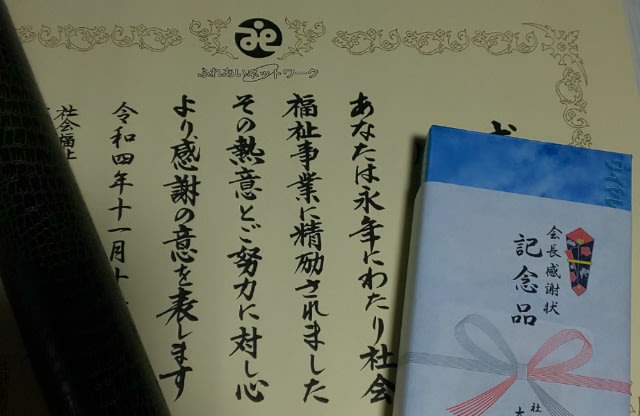 ふれあいネットワーク
あなたは永年にわたり社会
福祉事業に精励されました
その熱意とご努力に対し心
より感謝の意を表します
令和四年十一月十
社会福祉
会長感謝状
記念品
社